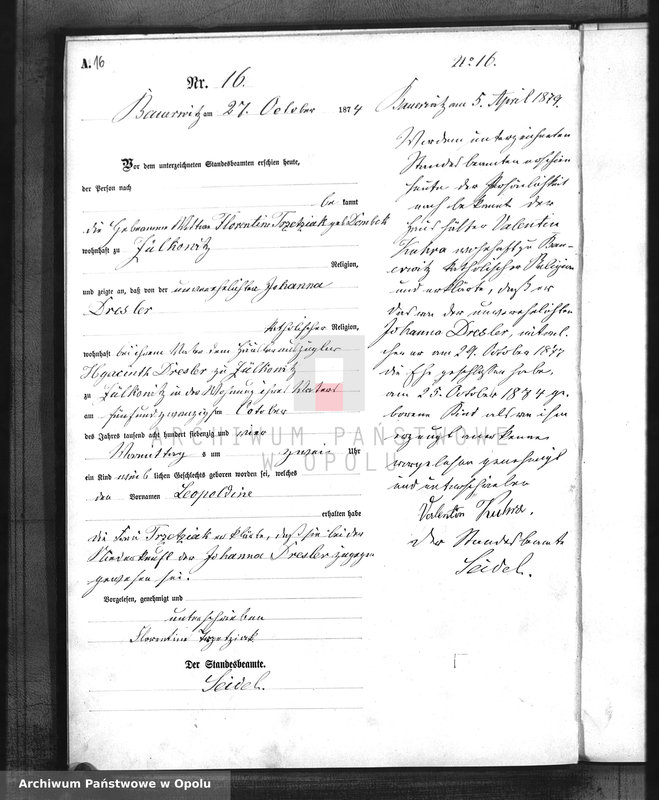 A. 16
Nr. 16.
Bauerwitz am 27. October 1874
Vor dem unterzeichneten Standesbeamten erschien heute,
der Person nach
be kannt
die Hebamme Wittwe Florentine Trzetziak geb. Dombek
wohnhaft zu Zülkowitz
Religion,
und zeigte an, daß von der unverehelichten Johanna
Dresler
katholischer Religion,
wohnhaft bei ihrem Vater dem Häusler
Hyacinth Dresler zu Zülkowitz
zu Zülkowitz in der Wohnung ihres Vaters
am fünfundzwanzigsten October
des Jahres tausend acht hundert siebenzig und vier
Vormittag s um zwei Uhr
ein Kind weib lichen Geschlechts geboren worden sei, welches
den Vornamen Leopoldine
erhalten habe
Die Frau Trzetziak erklärte, daß sie bei der
Niederkunft der Johanna Dresler zugegen
gewesen sei.
Vorgelesen, genehmigt und
unterschrieben
Florentine Trzetziak
Der Standesbeamte.
Seidel.
No 16.
Bauerwitz am 5. April 1879.
Vor dem unterzeichneten
Standesbeamten erschien
heute der Persönlichkeit
nach bekannt der
Haushälter Valentin
Kukra wohnhaft zu Bau-
erwitz katholischer Religion
und erklärte, daß er
das von der unverehelichten
Johanna Dresler, mit wel-
cher er am 29. October 1877
die Ehe geschlossen habe,
am 25. October 1874 ge-
borene Kind als von ihm
erzeugt anerkenne
vorgelesen genehmigt
und unterschrieben
Valentin Kukra.
Der Standesbeamte
Seidel.
ARCHIWUM PAŃSTWOWE
W OPOLU
Archiwum Państwowe w Opolu